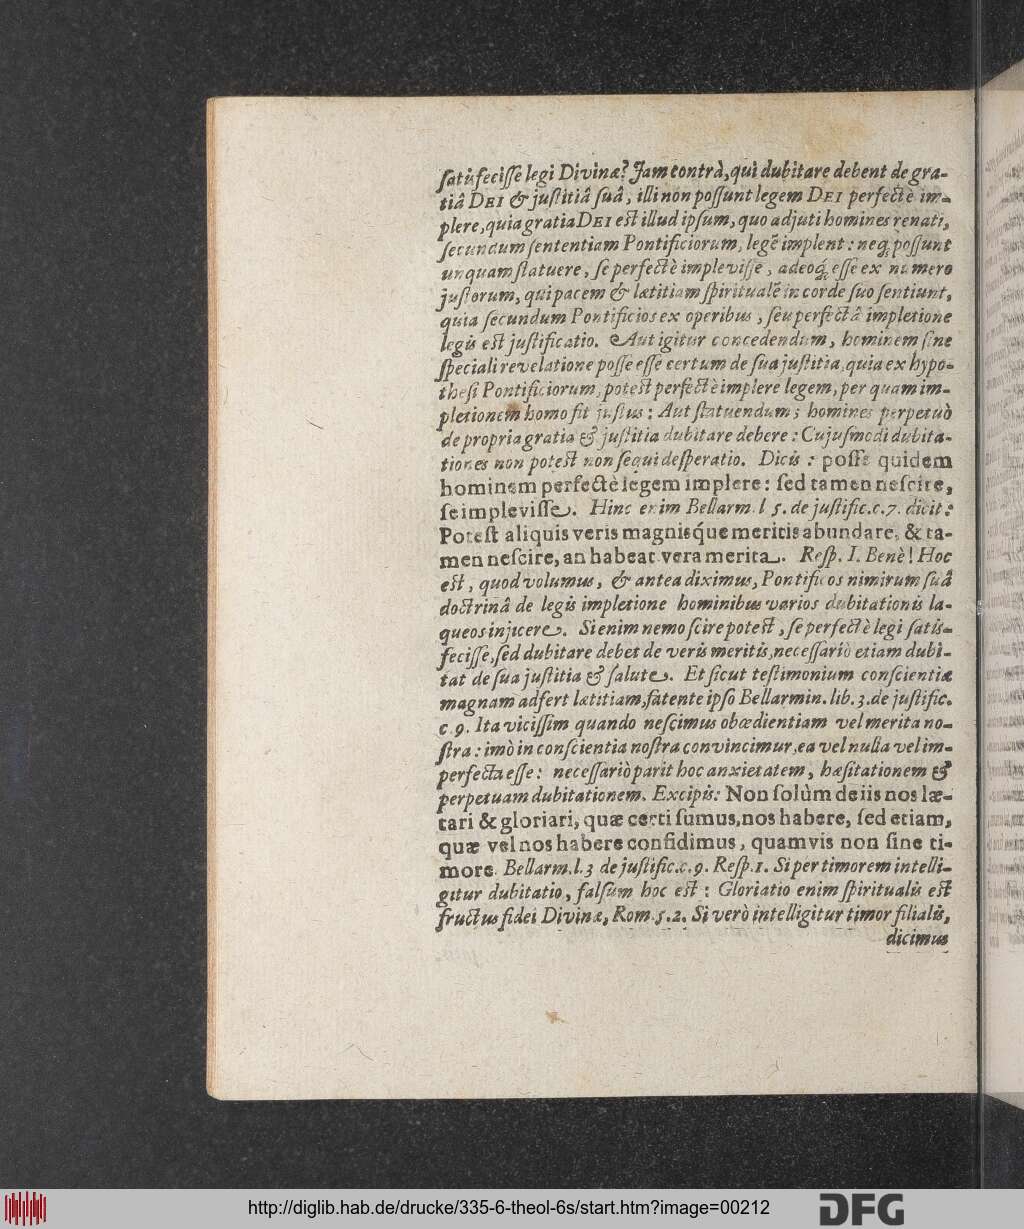 satisfecisse legi Divinæ? Jam contrà, qui dubitare debent de gra-
tiâ DEI & justitiâ suâ, illi non possunt legem DEI perfectè im-
plere, quia gratia DEI est illud ipsum, quo adjuti homines renati,
secundum sententiam Pontificiorum, legẽ implent: neq; possunt
unquam statuere, se perfectè implevisse, adeoq́; esse ex numero
justorum, qui pacem & lætitiam spiritualẽ in corde suo sentiunt,
quia secundum Pontificios ex operibus, seu perfectâ impletione
legis est justificatio. Aut igitur concedendum, hominem sine
speciali revelatione posse esse certum de sua justitia, quia ex hypo-
thesi Pontificiorum, potest perfectè implere legem, per quam im-
pletionem homo fit justus: Aut statuendum; homines perpetuò
de propria gratia & justitia dubitare debere: Cujusmodi dubita-
tiones non potest non sequi desperatio. Dicis: posse quidem
hominem perfectè legem implere: sed tamen nescire,
se implevisse. Hinc enim Bellarm. l 5. de justific. c. 7. dicit:
Potest aliquis veris magnisq́ue meritis abundare, & ta-
men nescire, an habeat vera merita. Resp. I. Benè! Hoc
est, quod volumus, & antea diximus, Pontificos nimirum suâ
doctrinâ de legis impletione hominibus varios dubitationis la-
queos injicere. Si enim nemo scire potest, se perfectè legi satis-
fecisse, sed dubitare debet de veris meritis, necessariò etiam dubi-
tat de sua justitia & salute. Et sicut testimonium conscientiæ
magnam adfert lætitiam, fatente ipso Bellarmin. lib. 3. de justific.
c. 9. Ita vicissim quando nescimus obœdientiam vel merita no-
stra: imò in conscientia nostra convincimur, ea vel nulla vel im-
perfecta esse: necessariò parit hoc anxietatem, hæsitationem &
perpetuam dubitationem. Excipis: Non solùm de iis nos læ-
tari & gloriari, quæ certi sumus, nos habere, sed etiam,
quæ vel nos habere confidimus, quamvis non sine ti-
more. Bellarm. l. 3 de justific. c. 9. Resp. 1. Si per timorem intelli-
gitur dubitatio, falsum hoc est: Gloriatio enim spiritualis est
fructus fidei Divinæ, Rom. 5. 2. Si verò intelligitur timor filialis,
dicimus
http://diglib.hab.de/drucke/335-6-theol-6s/start.htm?image=00212
DFG